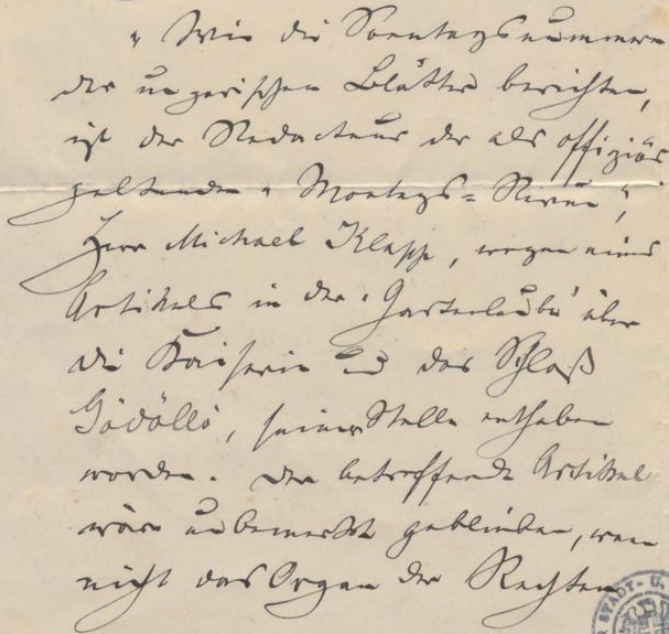 "Wie die Sonntagsnummern
der ungarischen Blätter berichten,
ist der Redacteur der als offiziös
geltenden "Montags=Revue",
Herr Michael Klapp, wegen eines
Artikels in der "Gartenlaube" über
die Kaiserin und das Schloß
Gödöllö, seiner Stelle enthoben
worden. Der betreffende Artikel
wäre unbemerkt geblieben, wenn
nicht das Organ der Rechten
STADT- U.